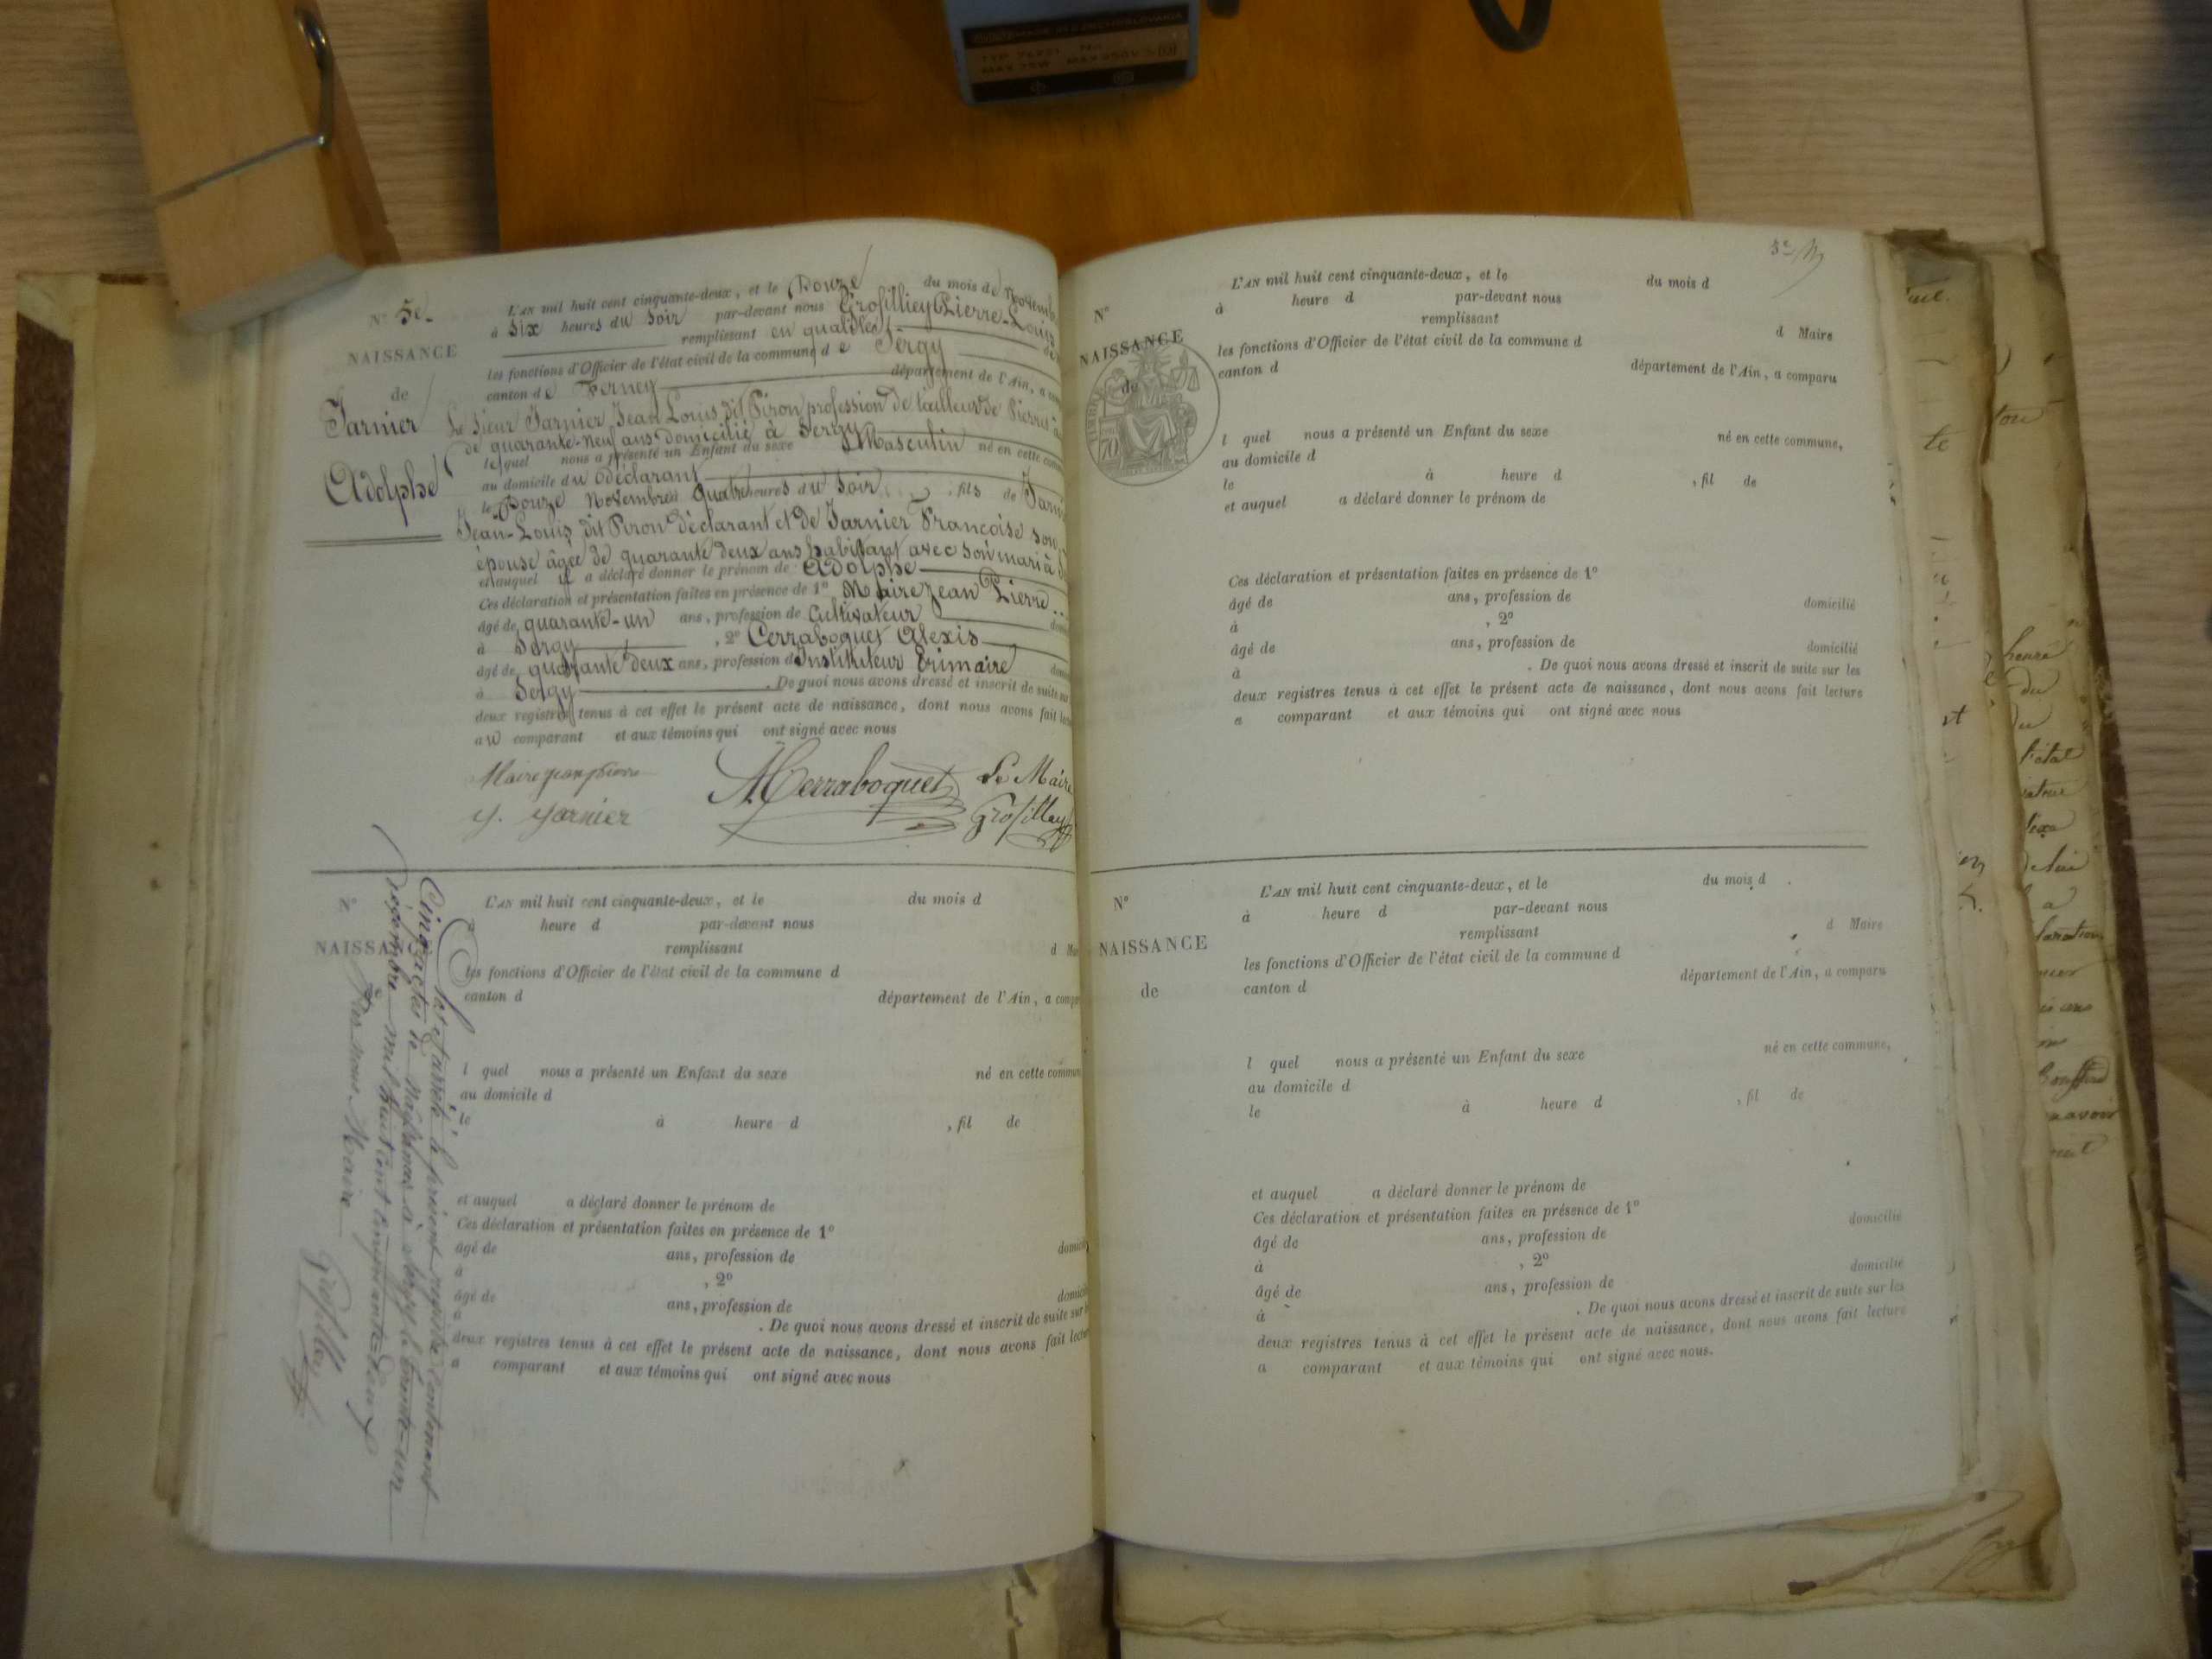 N° 5e.
NAISSANCE
de
Jarnier
Adolphe
L'AN mil huit cent cinquante-deux, et le Douze du mois de Novemb
à Six heures du Soir par-devant nous Grosilliey Pierre-Louis
remplissant en qualité
les fonctions d'Officier de l'état civil de la commune de Sergy
canton de Ferney département de l'Ain, a com
Le Sieur Jarnier Jean Louis dit Piron profession de tailleur de Pierres
de quarante-neuf ans domicilié à Sergy
lequel nous a présenté un Enfant du sexe Masculin né en cette comm
au domicile du déclarant
le Douze Novembre à Quatre heures du Soir, fils de Jarni
Jean-Louis dit Piron déclarant et de Jarnier Françoise son
épouse âgée de quarante deux ans habitant avec son mari à S
et auquel il a déclaré donner le prénom de Adolphe
Ces déclaration et présentation faites en présence de 1° Maire Jean Pierre
âgé de quarante-un ans, profession de Cultivateur domi
à Sergy, 2° Cerraboquet Alexis
âgé de quarante deux ans, profession d'Instituteur Primaire domi
à Sergy. De quoi nous avons dressé et inscrit de suite sur
deux registres tenus à cet effet le présent acte de naissance, dont nous avons fait lect
au comparant et aux témoins qui ont signé avec nous
Maire jean pierre
J. Jarnier
ACerraboquet
Le Maire
Grosilley
NAISSANCE
L'AN mil huit cent cinquante-deux, et le du mois d
heure d par-devant nous
remplissant d Mai
les fonctions d'Officier de l'état civil de la commune d
canton d département de l'Ain, a compa
l quel nous a présenté un Enfant du sexe né en cette commun
au domicile d
le à heure d , fil de
et auquel a déclaré donner le prénom de
Ces déclaration et présentation faites en présence de 1°
âgé de ans, profession de domicil
à , 2°
âgé de ans, profession de domicil
à . De quoi nous avons dressé et inscrit de suite sur l
deux registres tenus à cet effet le présent acte de naissance, dont nous avons fait lectur
a comparant et aux témoins qui ont signé avec nous
Clos et arrêté le présent registre contenant
Cinq actes de Naissances à Sergy le trente-un
décembre mil huit cent cinquante-deux
Par nous Maire
Grosilley
5e
N°
NAISSANCE
de
L'AN mil huit cent cinquante-deux, et le du mois d
à heure d par-devant nous
remplissant d Maire
les fonctions d'Officier de l'état civil de la commune d
canton d département de l'Ain, a comparu
l quel nous a présenté un Enfant du sexe né en cette commune,
au domicile d
le à heure d , fil de
et auquel a déclaré donner le prénom de
Ces déclaration et présentation faites en présence de 1°
âgé de ans, profession de domicilié
à , 2°
âgé de ans, profession de domicilié
à . De quoi nous avons dressé et inscrit de suite sur les
deux registres tenus à cet effet le présent acte de naissance, dont nous avons fait lecture
a comparant et aux témoins qui ont signé avec nous
N°
NAISSANCE
de
L'AN mil huit cent cinquante-deux, et le du mois d
à heure d par-devant nous
remplissant d Maire
les fonctions d'Officier de l'état civil de la commune d
canton d département de l'Ain, a comparu
l quel nous a présenté un Enfant du sexe né en cette commune,
au domicile d
le à heure d , fil de
et auquel a déclaré donner le prénom de
Ces déclaration et présentation faites en présence de 1°
âgé de ans, profession de domicilié
à , 2°
âgé de ans, profession de domicilié
à . De quoi nous avons dressé et inscrit de suite sur les
deux registres tenus à cet effet le présent acte de naissance, dont nous avons fait lecture
a comparant et aux témoins qui ont signé avec nous.